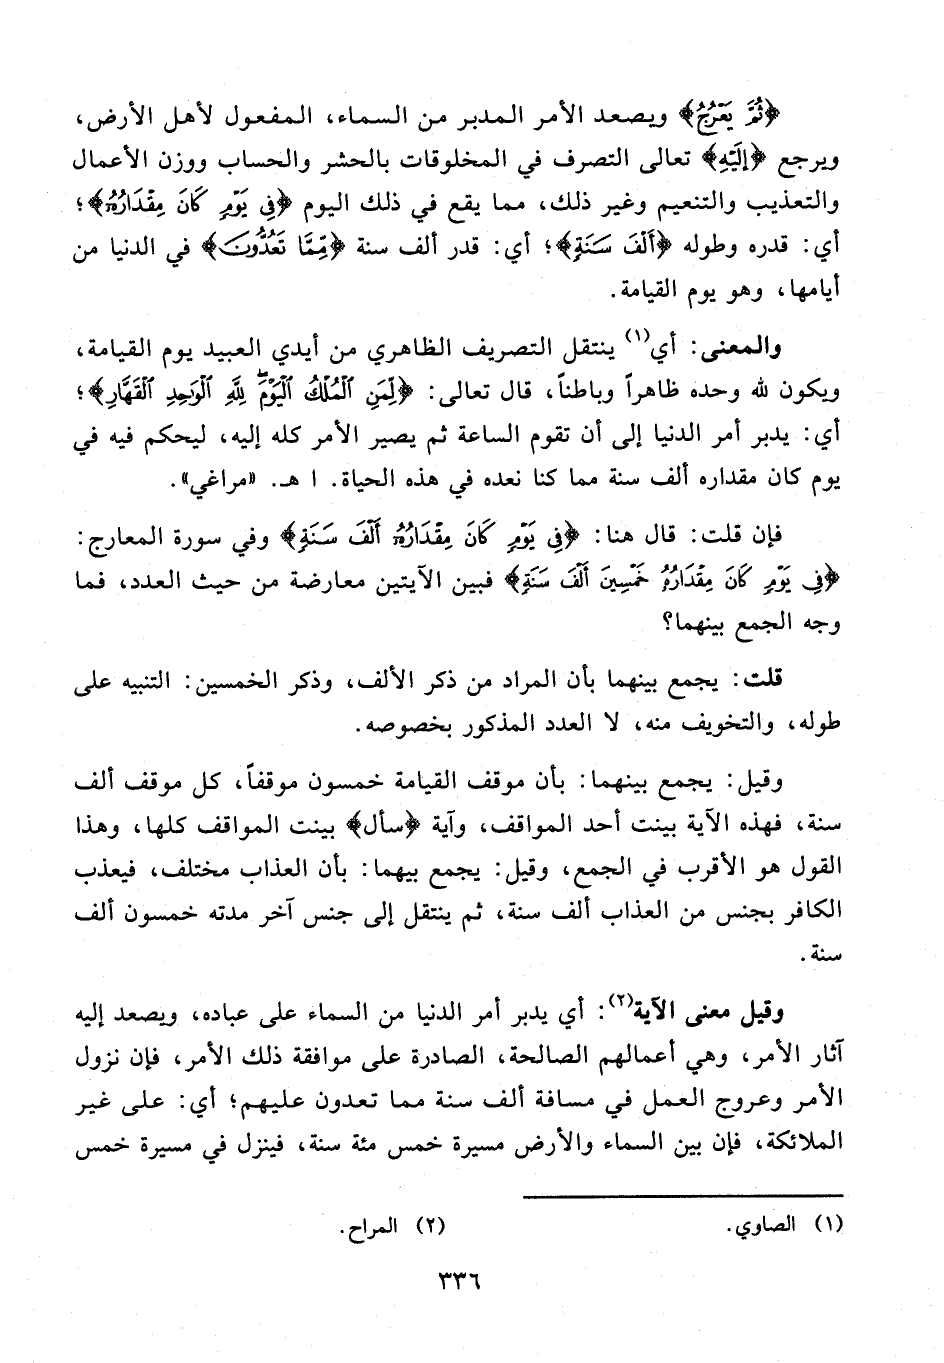 ﴿ثُمَّ يَعْرُجُ﴾ ويصعد الأمر المدبر من السماء، المفعول لأهل الأرض،
ويرجع ﴿إِلَيْهِ﴾ تعالى التصرف في المخلوقات بالحشر والحساب ووزن الأعمال
والتعذيب والتنعيم وغير ذلك، مما يقع في ذلك اليوم ﴿فِي يَوْمٍ كَانَ مِقْدَارُهُۥ﴾؛
أي: قدره وطوله ﴿أَلْفَ سَنَةٍ﴾؛ أي: قدر ألف سنة ﴿مِّمَّا تَعُدُّونَ﴾ في الدنيا من
أيامها، وهو يوم القيامة.
والمعنى: أي(١) ينتقل التصريف الظاهري من أيدي العبيد يوم القيامة،
ويكون لله وحده ظاهراً وباطناً، قال تعالى: ﴿لِّمَنِ ٱلْمُلْكُ ٱلْيَوْمَ ۖ لِلَّهِ ٱلْوَٰحِدِ ٱلْقَهَّارِ﴾؛
أي: يدبر أمر الدنيا إلى أن تقوم الساعة ثم يصير الأمر كله إليه، ليحكم فيه في
يوم كان مقداره ألف سنة مما كنا نعده في هذه الحياة. ا هـ. «مراغي».
فإن قلت: قال هنا: ﴿فِي يَوْمٍ كَانَ مِقْدَارُهُۥ أَلْفَ سَنَةٍ﴾ وفي سورة المعارج:
﴿فِي يَوْمٍ كَانَ مِقْدَارُهُۥ خَمْسِينَ أَلْفَ سَنَةٍ﴾ فبين الآيتين معارضة من حيث العدد، فما
وجه الجمع بينهما؟
قلت: يجمع بينهما بأن المراد من ذكر الألف، وذكر الخمسين: التنبيه على
طوله، والتخويف منه، لا العدد المذكور بخصوصه.
وقيل: يجمع بينهما: بأن موقف القيامة خمسون موقفاً، كل موقف ألف
سنة، فهذه الآية بينت أحد المواقف، وآية ﴿سأل﴾ بينت المواقف كلها، وهذا
القول هو الأقرب في الجمع، وقيل: يجمع بيهما: بأن العذاب مختلف، فيعذب
الكافر بجنس من العذاب ألف سنة، ثم ينتقل إلى جنس آخر مدته خمسون ألف
سنة.
وقيل معنى الآية(٢): أي يدبر أمر الدنيا من السماء على عباده، ويصعد إليه
آثار الأمر، وهي أعمالهم الصالحة، الصادرة على موافقة ذلك الأمر، فإن نزول
الأمر وعروج العمل في مسافة ألف سنة مما تعدون عليهم؛ أي: على غير
الملائكة، فإن بين السماء والأرض مسيرة خمس مئة سنة، فينزل في مسيرة خمس
(١) الصاوي. (٢) المراح.
٣٣٦